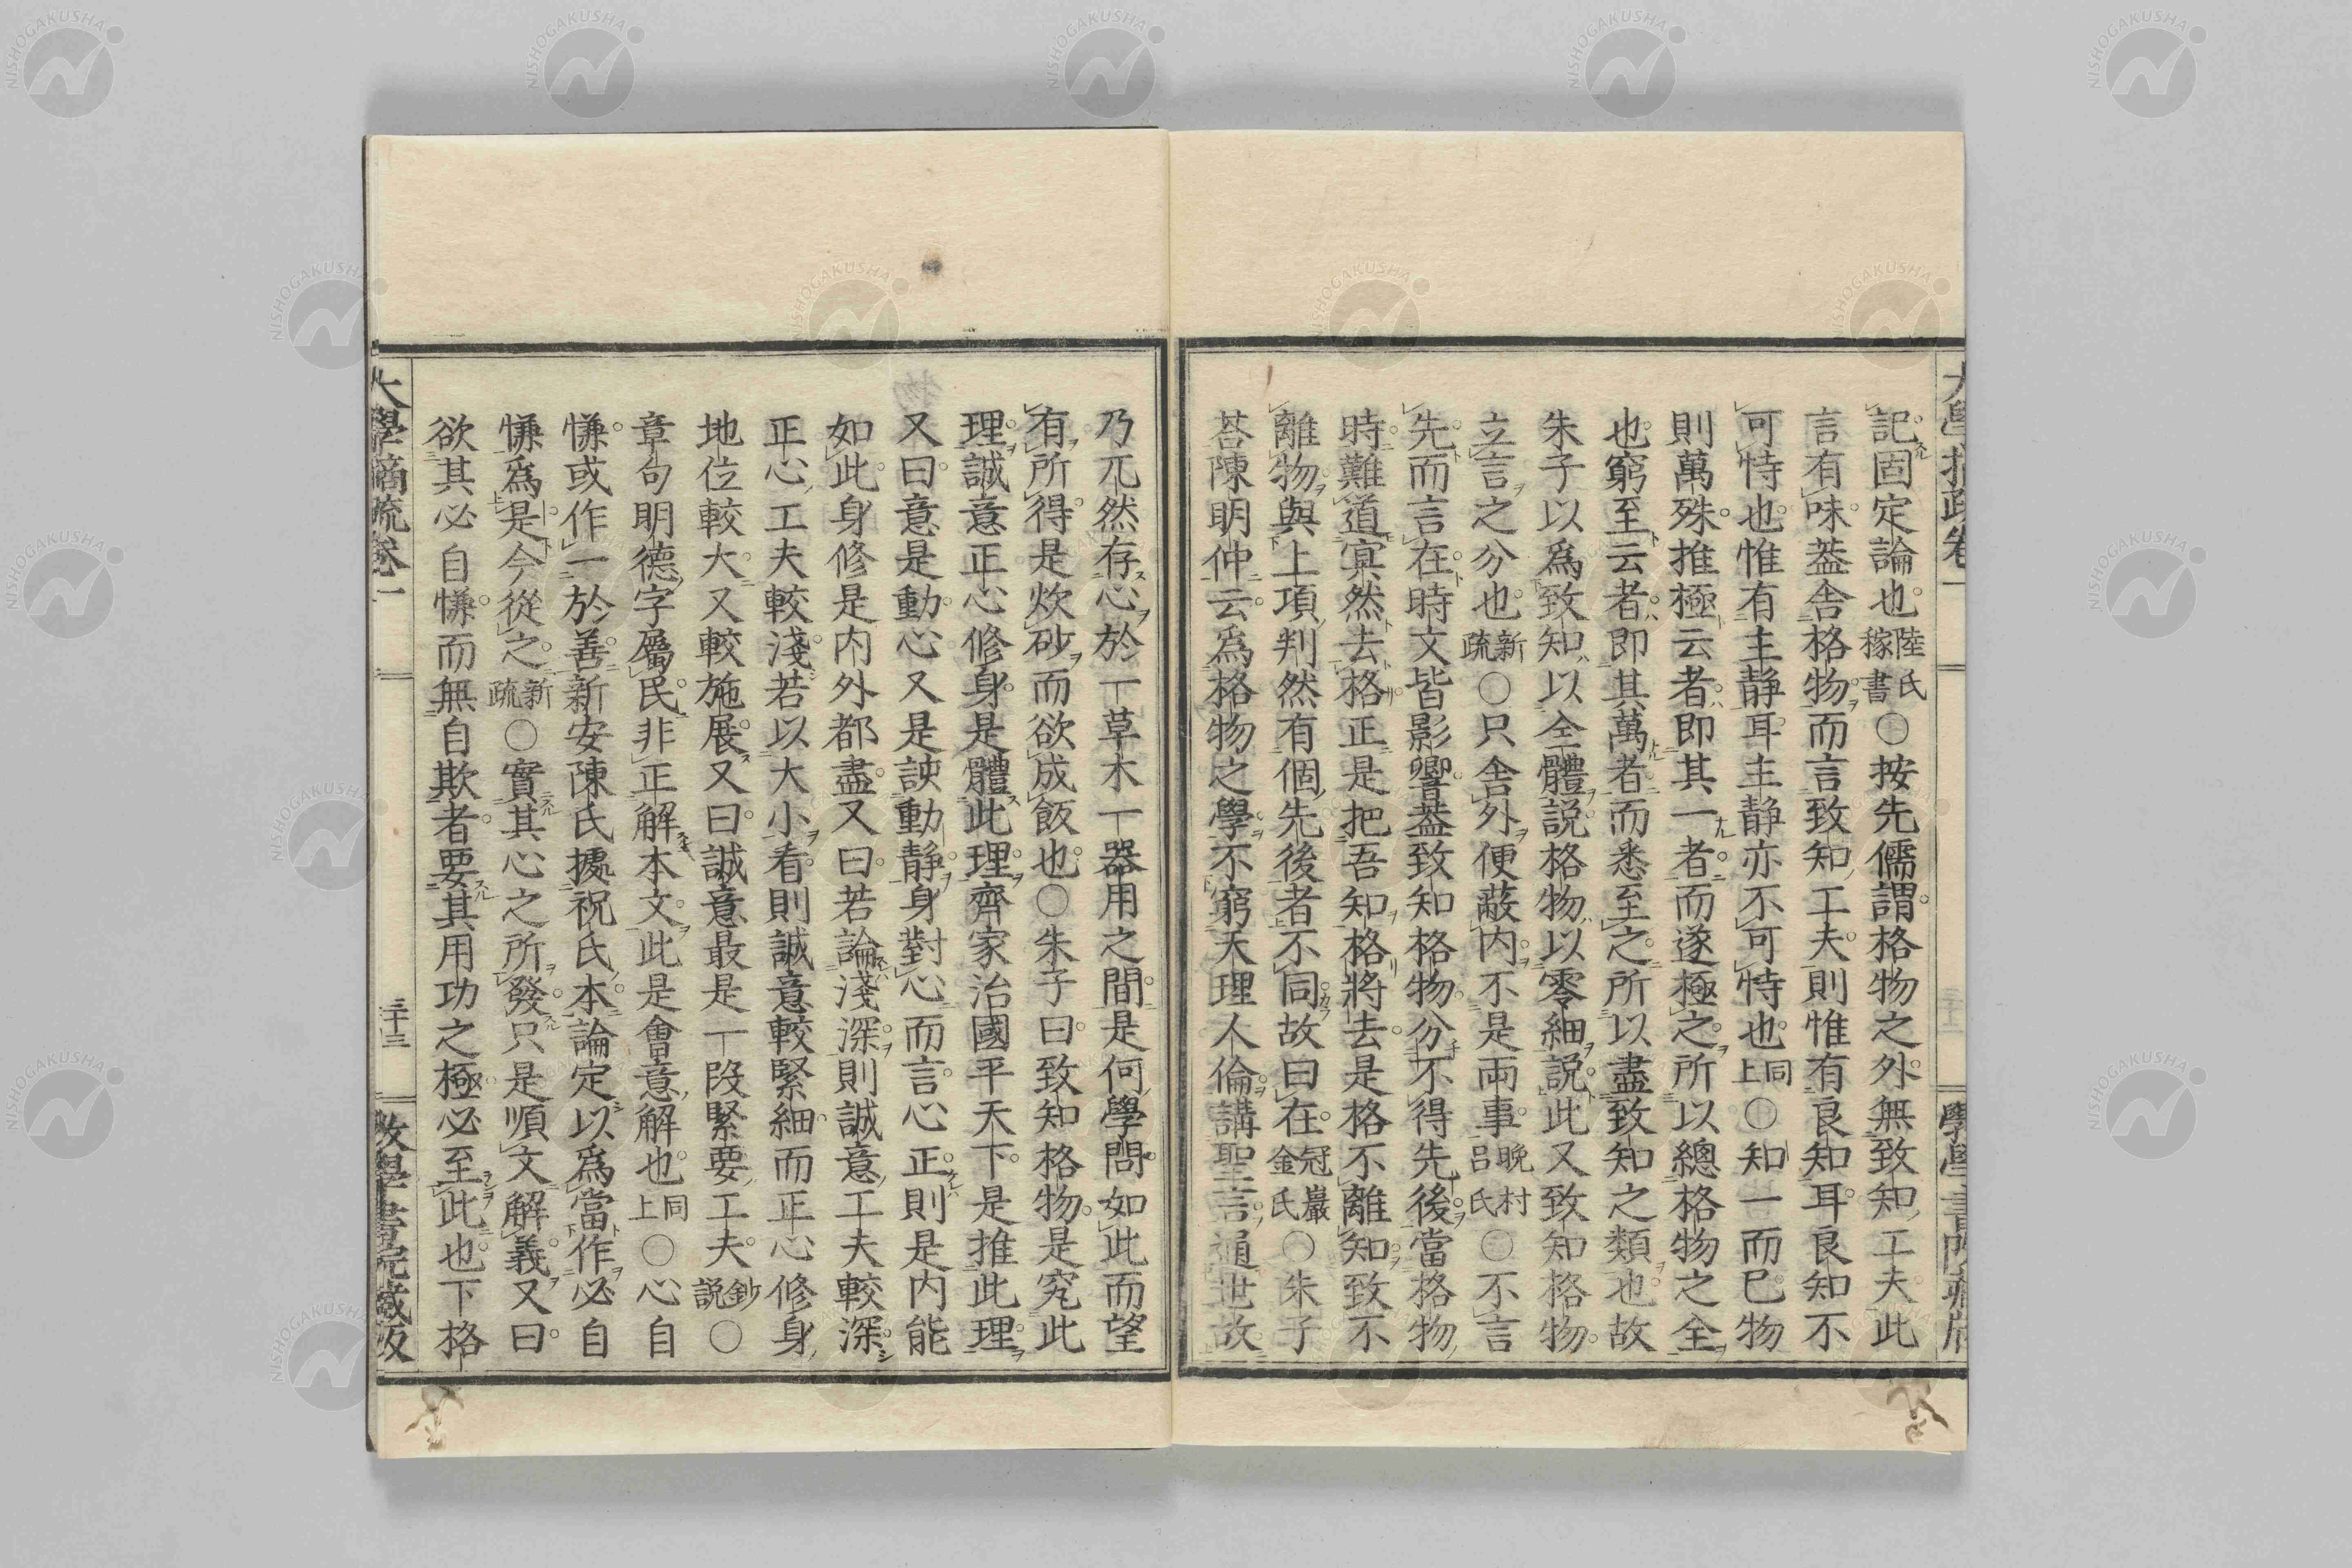 記固定論也陸氏稼書○按先儒謂格物之外無致知工夫此
言有味蓋舎格物而言致知工夫則惟有良知耳良知不
可恃也惟有主静耳主静亦不可恃也同上○知一而已物
則萬殊推極云者即其一者而遂極之所以總格物之全
也窮至云者即其萬者而悉至之所以盡致知之類也故
朱子以爲致知以全體説格物以零細説此又致知格物
立言之分也新疏○只舎外便蔽内不是兩事晩村呂氏○不言
先而言在時文皆影響蓋致知格物分不得先後當格物
時難道冥然去格正是把吾知格將去是格不離知致不
離物與上項判然有個先後者不同故曰在冠巖金氏○朱子
荅陳明仲云爲格物之學不窮天理人倫講聖言通世故
乃兀然存心於一草木一器用之間是何學問如此而望
有所得是炊砂而欲成飯也○朱子曰致知格物是究此
理誠意正心修身是體此理齊家治國平天下是推此理
又曰意是動心又是該動静身對心而言心正則是内能
如此身修是内外都盡又曰若論淺深則誠意工夫較深
正心工夫較淺若以大小看則誠意較緊細而正心修身
地位較大又較施展又曰誠意最是一段緊要工夫鈔説○
章句明德字屬民非正解本文此是會意解也同上○心自
慊或作一於善新安陳氏據祝氏本論定以爲當作必自
慊爲是今從之新疏○實其心之所發只是順文解義又曰
欲其必自慊而無自欺者要其用功之極必至此也下格
大學摘疏卷一
三十三
敎學書院藏版